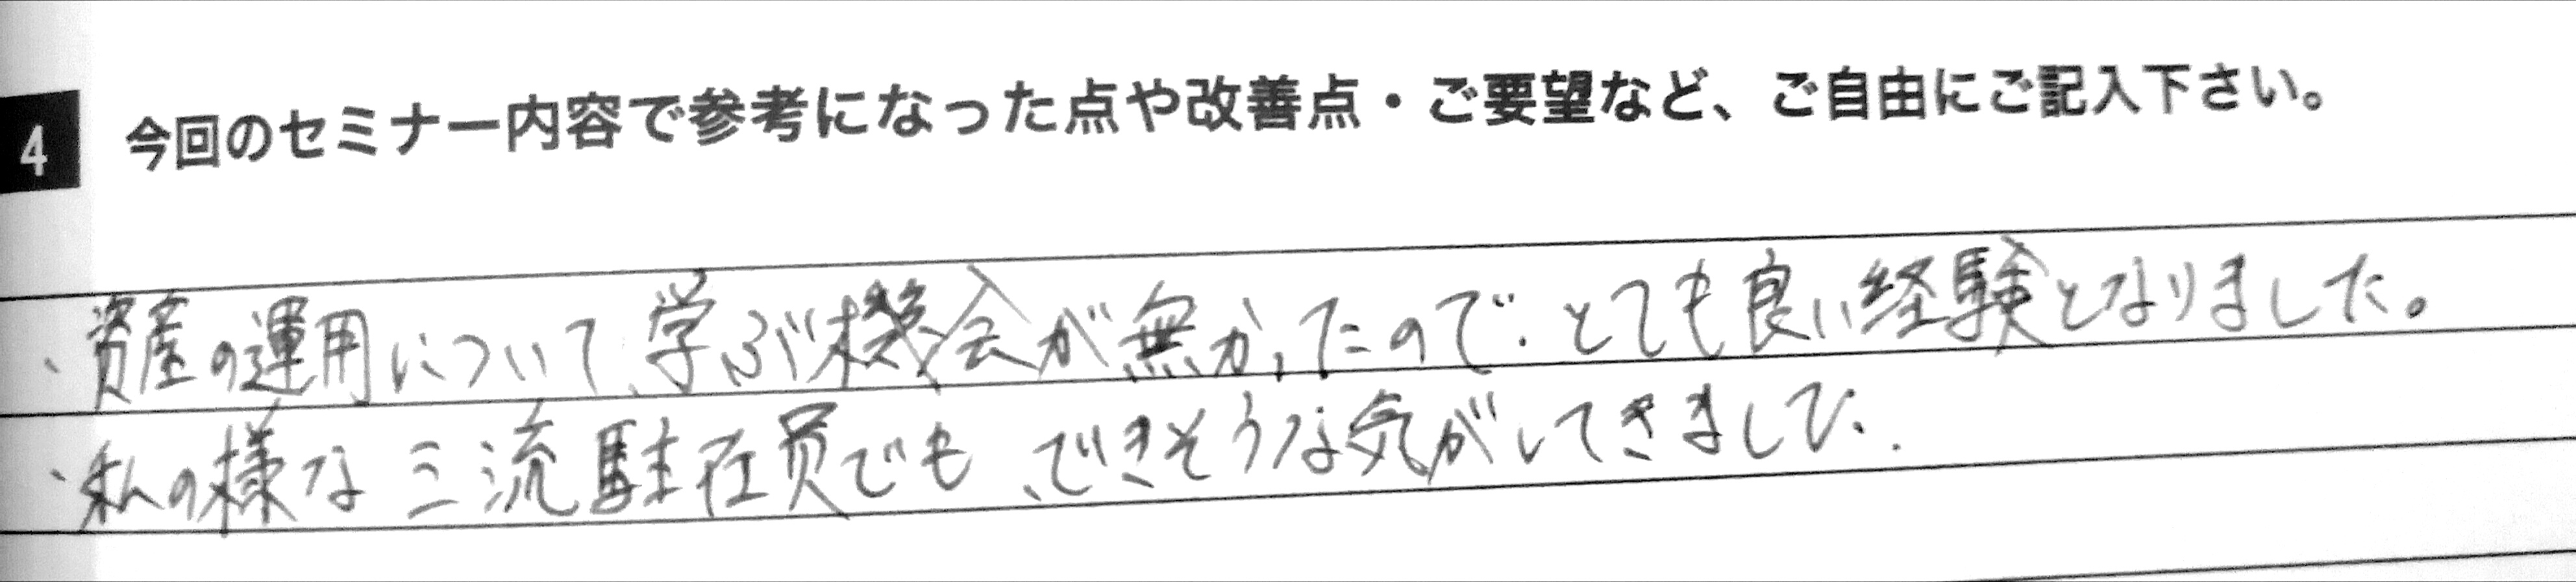 4 今回のセミナー内容で参考になった点や改善点・ご要望など、ご自由にご記入下さい。
・資産の運用について、学ぶ機会が無かったので、とても良い経験となりました。
・私の様な三流駐在員でも、できそうな気がしてきました。